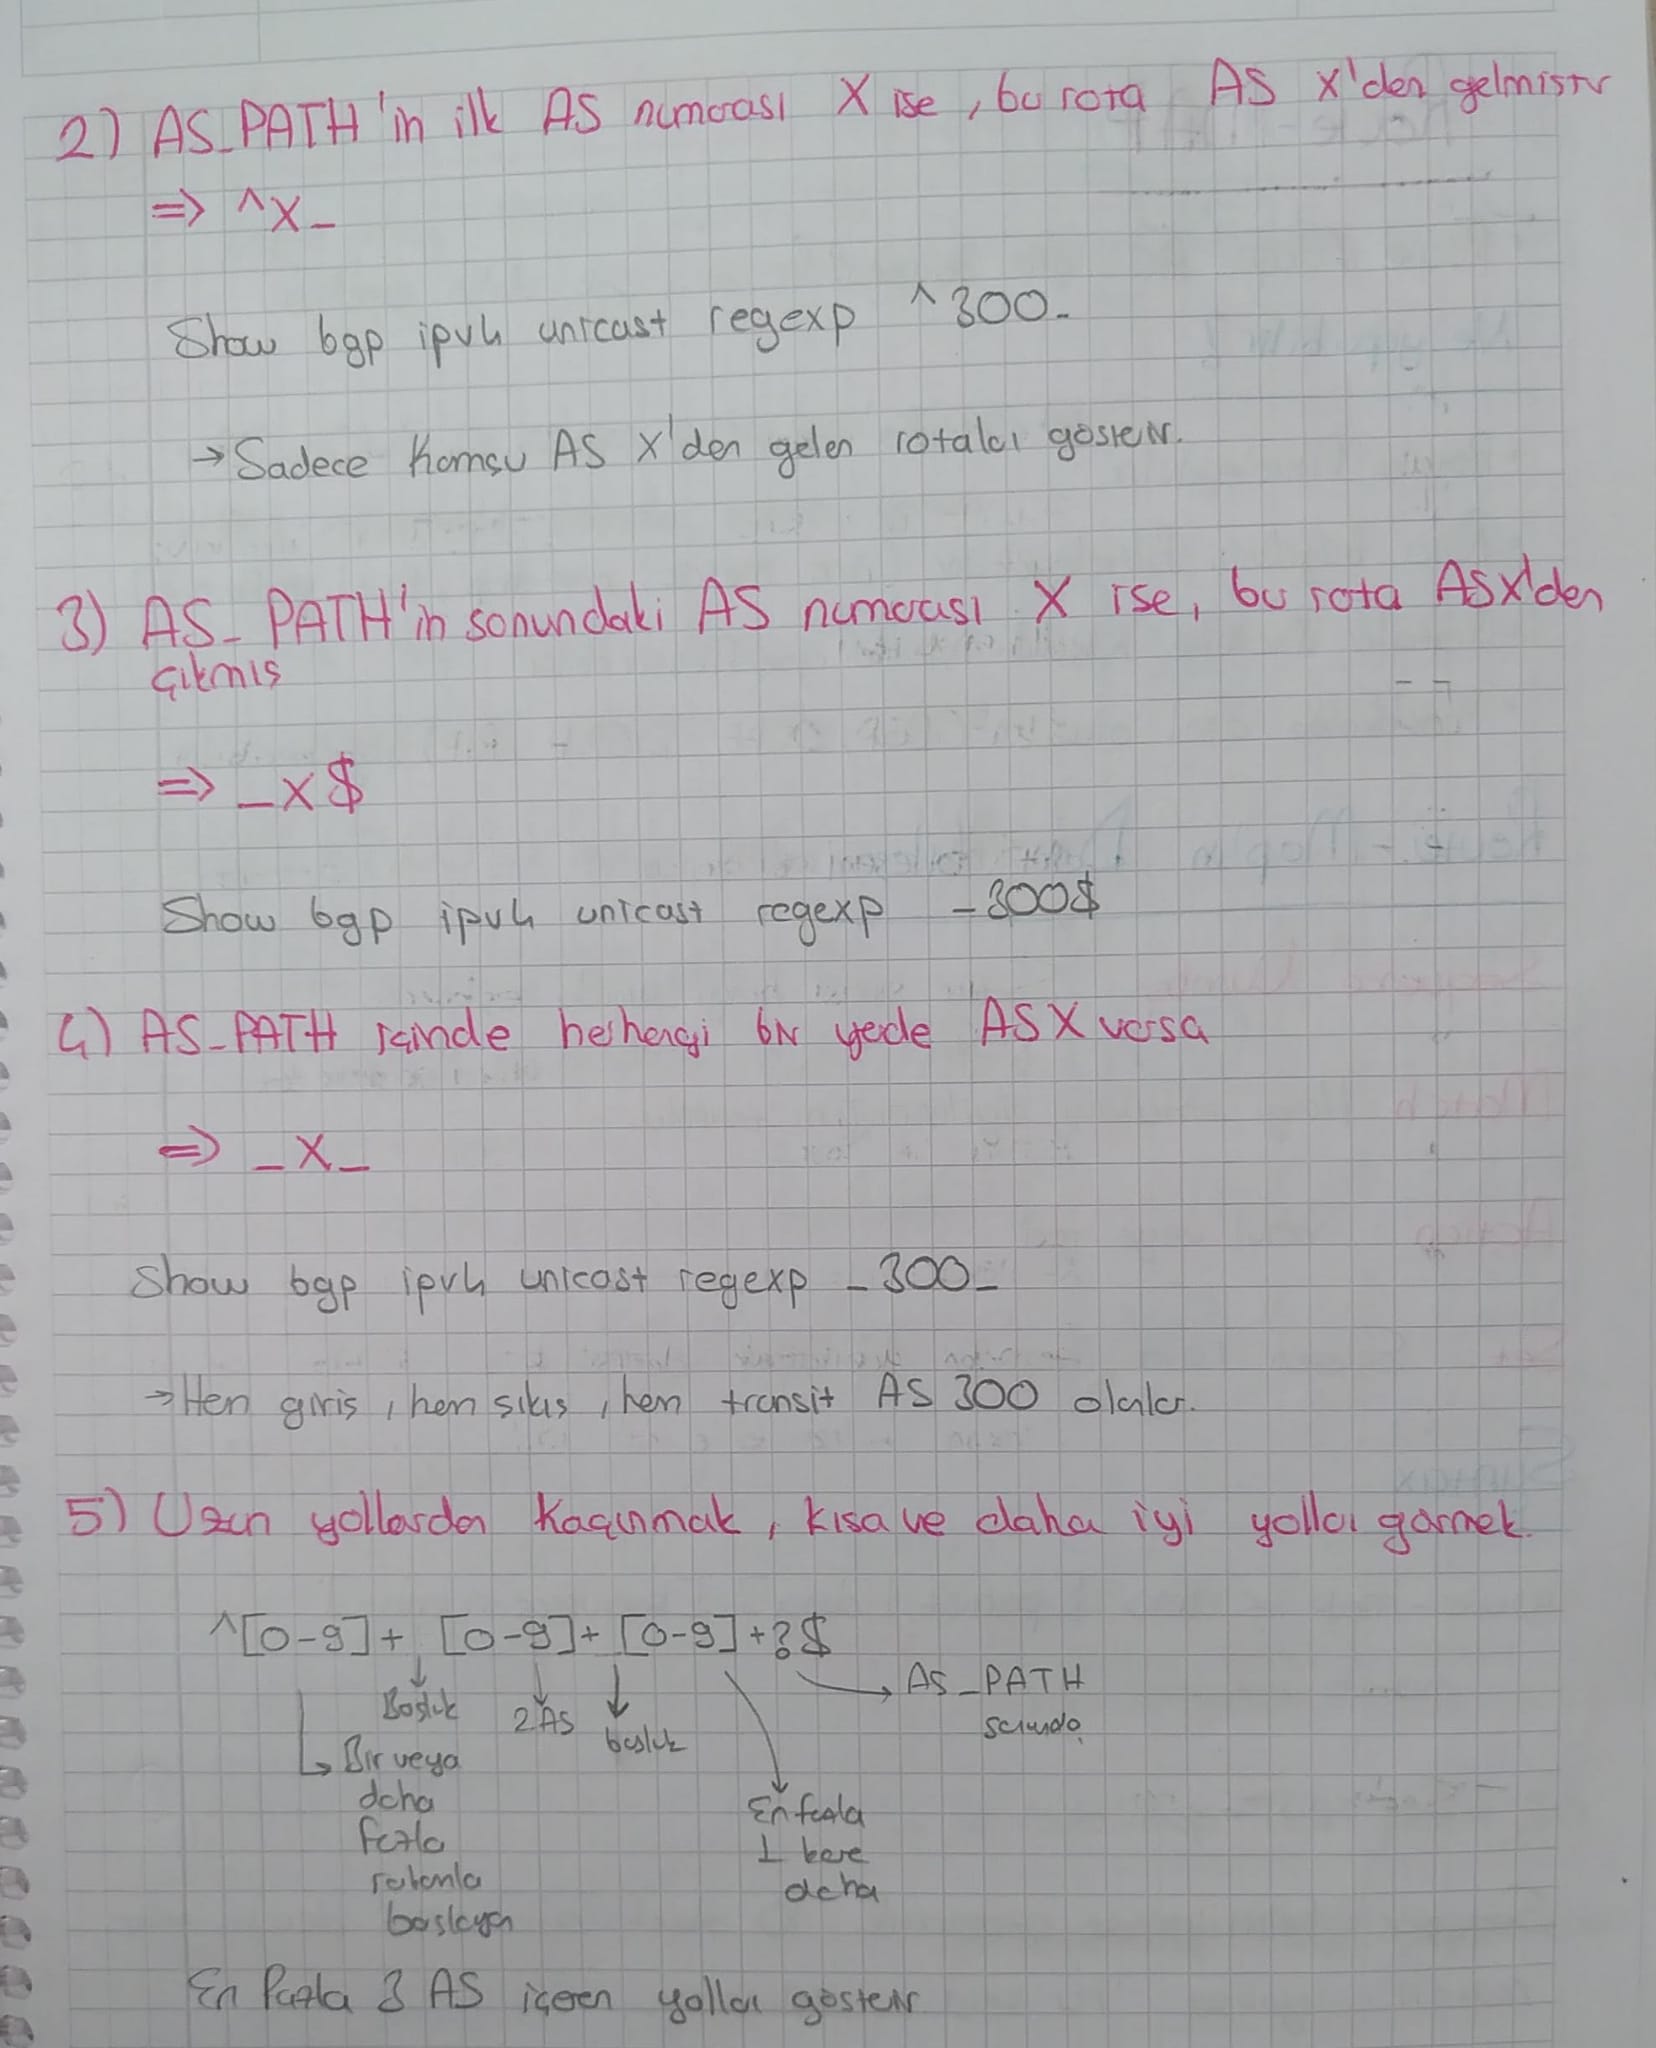 2) AS_PATH'in ilk AS numarası X ise, bu rota AS X'den gelmiştir
=> ^X_
Show bgp ipv4 unicast regexp ^300_
→ Sadece Komşu AS X'den gelen rotaları gösterir.
3) AS_PATH'in sonundaki AS numarası X ise, bu rota AS X'den
çıkmış
=> _X$
Show bgp ipv4 unicast regexp _300$
4) AS_PATH içinde herhangi bir yerde AS X varsa
=> _X_
Show bgp ipv4 unicast regexp _300_
→ Hem giriş, hem çıkış, hem transit AS 300 olanlar.
5) Uzun yollardan Kaçınmak, kısa ve daha iyi yolları görmek.
^[0-9]+ [0-9]+ [0-9]+?$
Boşluk 2 AS boşluk AS_PATH
sonunda
Bir veya
daha
fazla
rakamla
başlayan
En fazla
1 kere
daha
En Fazla 3 AS içeren yolları gösterir